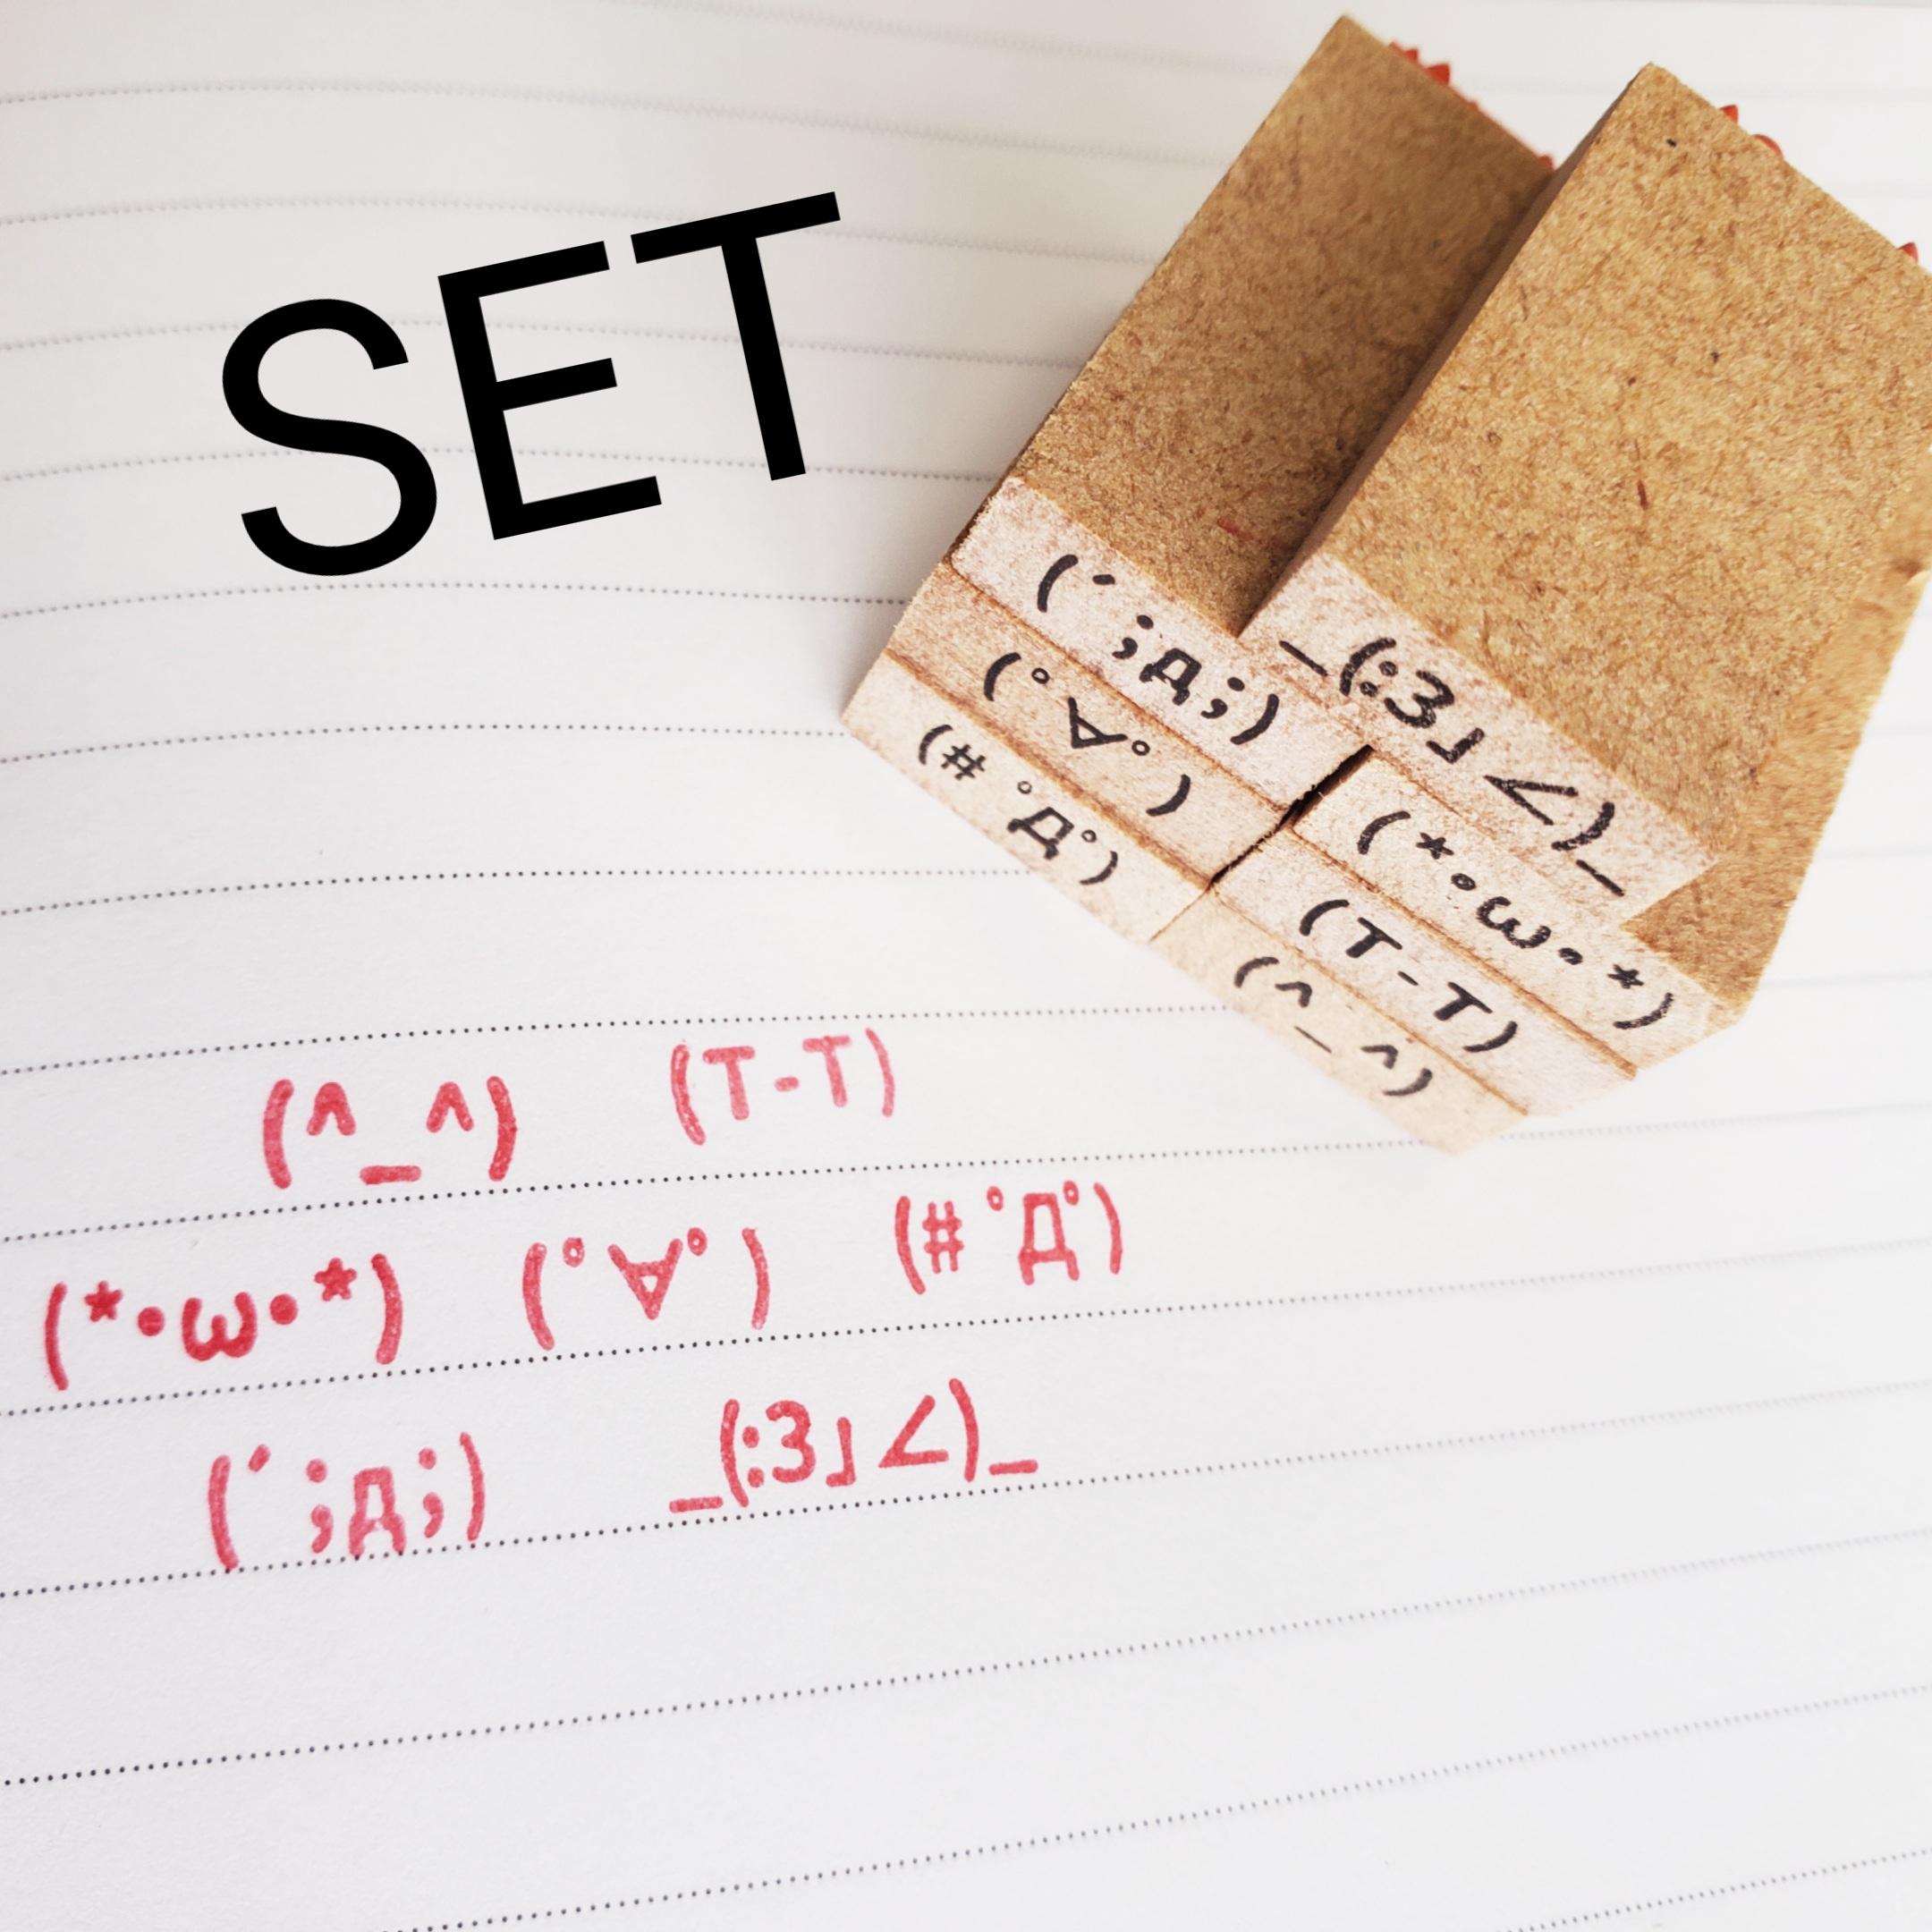 SET
(´ ;д;)
_(:3」∠)_
(° ∀° )
(*•ω•*)
(# °Д°)
(T-T)
(^_^)
(^_^) (T-T)
(*•ω•*) (° ∀° ) (# °Д°)
(´ ;д;) _(:3」∠)_